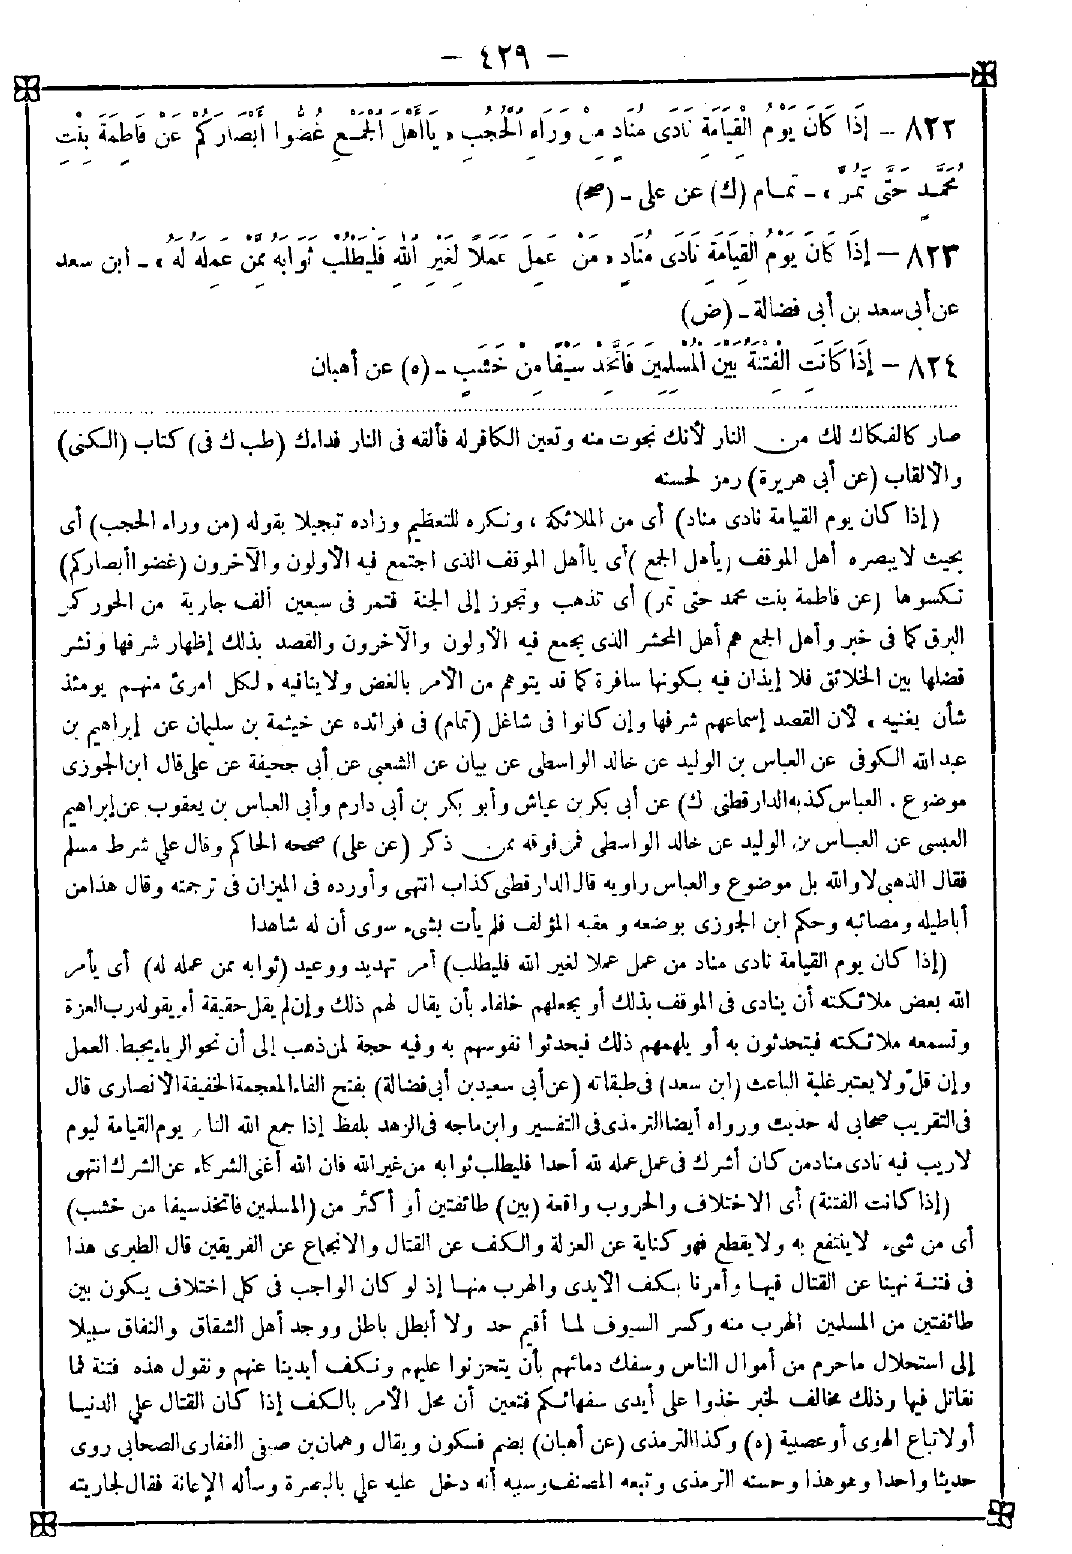 — ٤٢٩ —
٨٢٢ – إِذَا كَانَ يَوْمُ الْقِيَامَةِ نَادَى مُنَادٍ مِنْ وَرَاءِ الْحُجُبِ ، يَا أَهْلَ الْجَمْعِ غُضُّوا أَبْصَارَكُمْ عَنْ فَاطِمَةَ بِنْتِ
مُحَمَّدٍ حَتَّى تَمُرَّ ، – تمام (ك) عن على – (صح)
٨٢٣ – إِذَا كَانَ يَوْمُ الْقِيَامَةِ نَادَى مُنَادٍ ، مَنْ عَمِلَ عَمَلًا لِغَيْرِ اللهِ فَلْيَطْلُبْ ثَوَابَهُ مِمَّنْ عَمِلَهُ لَهُ ، – ابن سعد
عن أبى سعد بن أبى فضالة – (ض)
٨٢٤ – إِذَا كَانَتِ الْفِتْنَةُ بَيْنَ الْمُسْلِمِينَ فَاتَّخِذْ سَيْفًا مِنْ خَشَبٍ – (ه) عن أهبان
صار كالفكاك لك من النار لأنك نجوت منه وتعين الكافر له فألقه فى النار فداءك (طب ك فى) كتاب (الكنى)
والألقاب (عن أبى هريرة) رمز لحسنه
(إذا كان يوم القيامة نادى مناد) أى من الملائكة ، ونكره للتعظيم وزاده تبجيلا بقوله (من وراء الحجب) أى
بحيث لا يبصره أهل الموقف (يأهل الجمع) أى ياأهل الموقف الذى اجتمع فيه الأولون والآخرون (غضوا أبصاركم)
نكسوها (عن فاطمة بنت محمد حتى تمر) أى تذهب وتجوز إلى الجنة فتمر فى سبعين ألف جارية من الحور كمر
البرق كما فى خبر وأهل الجمع هم أهل المحشر الذى يجمع فيه الأولون والآخرون والقصد بذلك إظهار شرفها ونشر
فضلها بين الخلائق فلا إيذان فيه بكونها سافرة كما قد يتوهم من الأمر بالغض ولا ينافيه ، لكل امرئ منهم يومئذ
شأن يغنيه ، لأن القصد إسماعهم شرفها وإن كانوا فى شاغل (تمام) فى فرائده عن خيثمة بن سليمان عن إبراهيم بن
عبد الله الكوفى عن العباس بن الوليد عن خالد الواسطى عن بيان عن الشعبى عن أبى جحيفة عن على قال ابن الجوزى
موضوع . العباس كذبه الدارقطنى ك) عن أبى بكر بن عياش وأبو بكر بن أبى دارم وأبى العباس بن يعقوب عن إبراهيم
العبسى عن العباس بن الوليد عن خالد الواسطى فمن فوقه ممن ذكر (عن على) صححه الحاكم وقال علي شرط مسلم
فقال الذهبى لا والله بل موضوع والعباس راويه قال الدارقطى كذاب انتهى وأورده فى الميزان فى ترجمته وقال هذا من
أباطيله ومصائبه وحكم ابن الجوزى بوضعه وعقبه المؤلف فلم يأت بشىء سوى أن له شاهدا
(إذا كان يوم القيامة نادى مناد من عمل عملا لغير الله فليطلب) أمر تهديد ووعيد (ثوابه ممن عمله له) أى يأمر
الله بعض ملائكته أن ينادى فى الموقف بذلك أو يجعلهم خلفاء بأن يقال لهم ذلك وإن لم يقل حقيقة أو يقوله رب العزة
وتسمعه ملائكته فيتحدثون به أو يلهمهم ذلك فيحدثوا نفوسهم به وفيه حجة لمن ذهب إلى أن نحو الرياء يحبط العمل
وإن قلّ ولا يعتبر غلبة الباعث (ابن سعد) فى طبقاته (عن أبى سعيد بن أبى فضالة) بفتح الفاء المعجمة الخفيفة الأنصارى قال
فى التقريب صحابى له حديث ورواه أيضا الترمذى فى التفسير وابن ماجه فى الزهد بلفظ إذا جمع الله الناس يوم القيامة ليوم
لاريب فيه نادى مناد من كان أشرك فى عمل عمله لله أحدا فليطلب ثوابه من غير الله فان الله أغنى الشركاء عن الشرك انتهى
(إذا كانت الفتنة) أى الاختلاف والحروب واقعة (بين) طائفتين أو أكثر من (المسلمين فاتخذ سيفا من خشب)
أى من شىء لا ينتفع به ولا يقطع فهو كناية عن العزلة والكف عن القتال والانجماع عن الفريقين قال الطبرى هذا
فى فتنة نهينا عن القتال فيها وأمرنا بكف الأيدى والهرب منها إذ لو كان الواجب فى كل اختلاف يكون بين
طائفتين من المسلمين الهرب منه وكسر السيوف لما أقيم حد ولا أبطل باطل ووجد أهل الشقاق والنفاق سبيلا
إلى استحلال ماحرم من أموال الناس وسفك دمائهم بأن يتحزنوا عليهم ونكف أيدينا عنهم ونقول هذه فتنة فما
نقاتل فيها وذلك مخالف لخبر خذوا على أيدى سفهائكم فتعين أن محل الأمر بالكف إذا كان القتال علي الدنيا
أو لاتباع الهوى أو عصبية (ه) وكذا الترمذى (عن أهبان) بضم فسكون ويقال وهبان بن صيفى الغفارى الصحابى روى
حديثا واحدا وهو هذا وحسنه الترمذى وتبعه المصنف وسببه أنه دخل عليه علي بالبصرة وسأله الإعانة فقال لجاريته